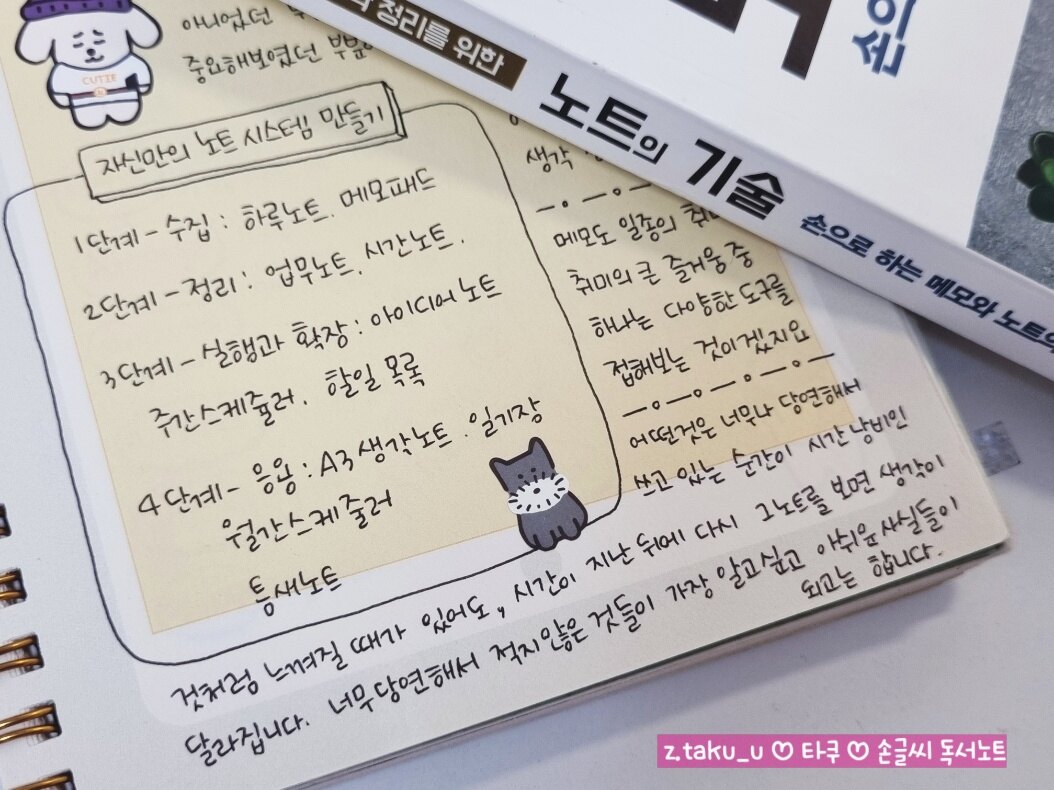 아니었던
중요해보였던 부분
CUTIE
자신만의 노트 시스템 만들기
1단계 - 수집 : 하루노트, 메모패드
2단계 - 정리 : 업무노트, 시간노트,
3단계 - 실행과 확장 : 아이디어 노트
주간스케쥴러, 할일 목록
4단계 - 응용 : A3 생각노트, 일기장
월간스케쥴러
틈새노트
생각
메모도 일종의 취미
취미의 큰 즐거움 중
하나는 다양한 도구를
접해보는 것이겠지요
어떤것은 너무나 당연해서
쓰고 있는 순간이 시간 낭비인
것처럼 느껴질 때가 있어도, 시간이 지난 뒤에 다시 그노트를 보면 생각이
달라집니다. 너무당연해서 적지않은 것들이 가장 알고싶고 아쉬운사실들이
되고는 합니다.
정리를 위한
노트의 기술
손으로 하는 메모와 노트의
손의
z.taku_u ♡ 타쿠 ♡ 손글씨 독서노트